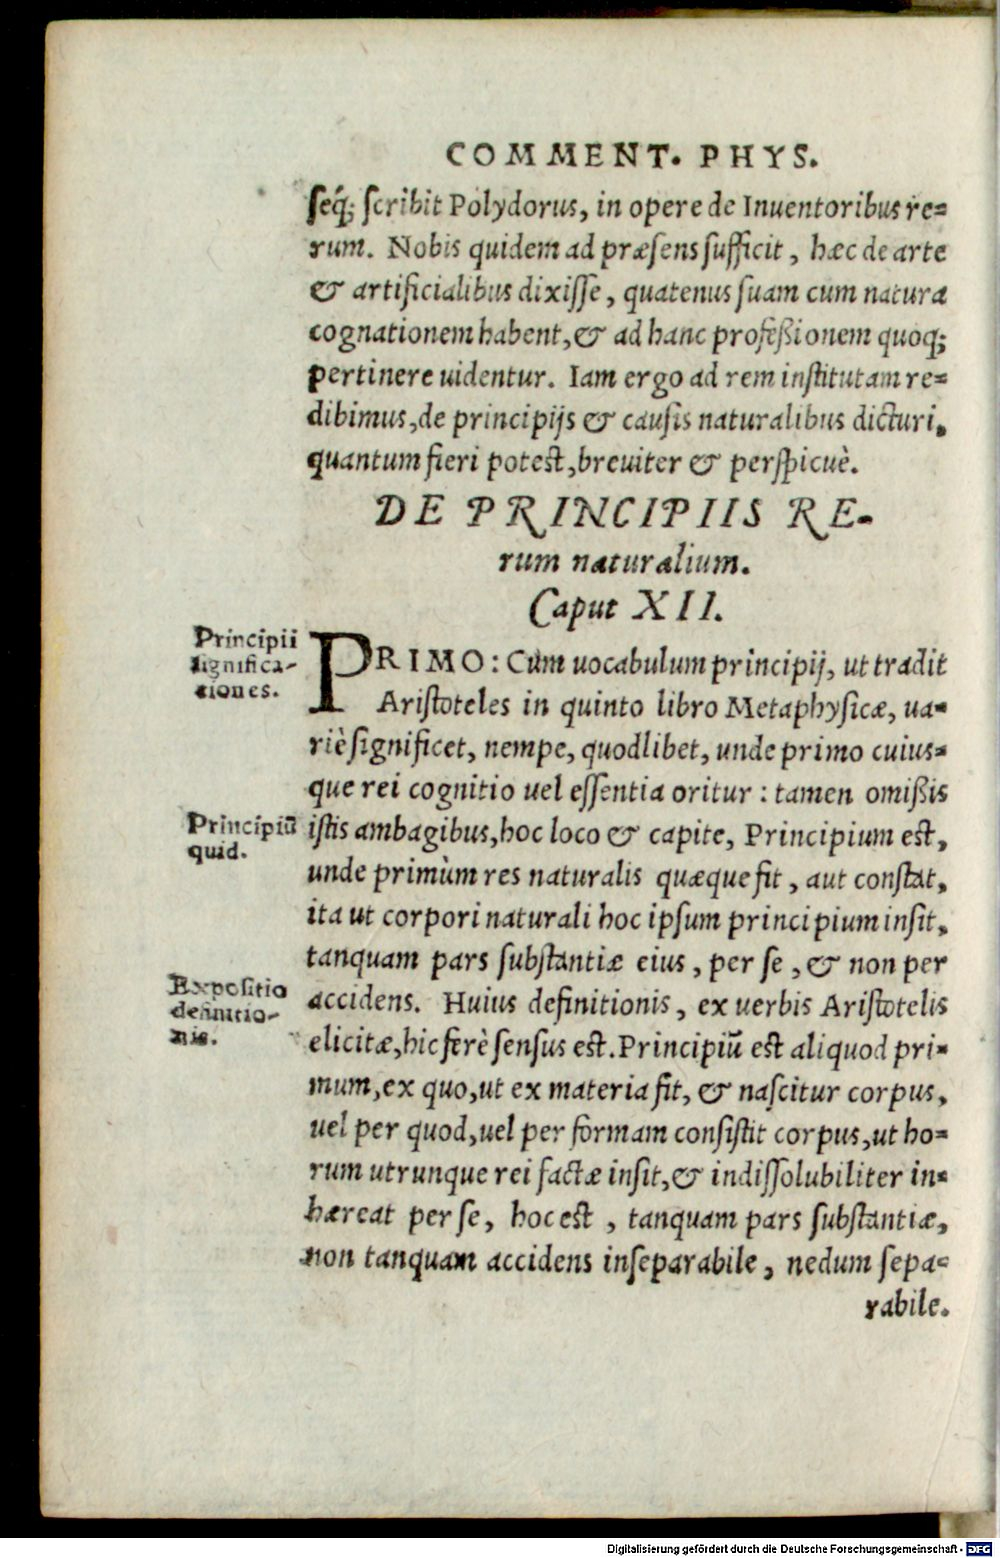 COMMENT. PHYS.
seq́; scribit Polydorus, in opere de Inuentoribus re-
rum. Nobis quidem ad præsens sufficit, hæc de arte
& artificialibus dixisse, quatenus suam cum natura
cognationem habent, & ad hanc professionem quoq;
pertinere uidentur. Iam ergo ad rem institutam re-
dibimus, de principijs & causis naturalibus dicturi,
quantum fieri potest, breuiter & perspicuè.
DE PRINCIPIIS RE-
rum naturalium.
Caput XII.
Principii
significa-
tiones.
PRIMO: Cùm uocabulum principij, ut tradit
Aristoteles in quinto libro Metaphysicæ, ua-
riè significet, nempe, quodlibet, unde primo cuius-
que rei cognitio uel essentia oritur: tamen omißis
Principiũ
quid.
istis ambagibus, hoc loco & capite, Principium est,
unde primùm res naturalis quæque fit, aut constat,
ita ut corpori naturali hoc ipsum principium insit,
tanquam pars substantiæ eius, per se, & non per
Expositio
definitio-
nis.
accidens. Huius definitionis, ex uerbis Aristotelis
elicitæ, hic ferè sensus est. Principiũ est aliquod pri-
mum, ex quo, ut ex materia fit, & nascitur corpus,
uel per quod, uel per formam consistit corpus, ut ho-
rum utrunque rei factæ insit, & indissolubiliter in-
hæreat per se, hoc est, tanquam pars substantiæ,
non tanquam accidens inseparabile, nedum sepa-
rabile.
Digitalisierung gefördert durch die Deutsche Forschungsgemeinschaft - DFG